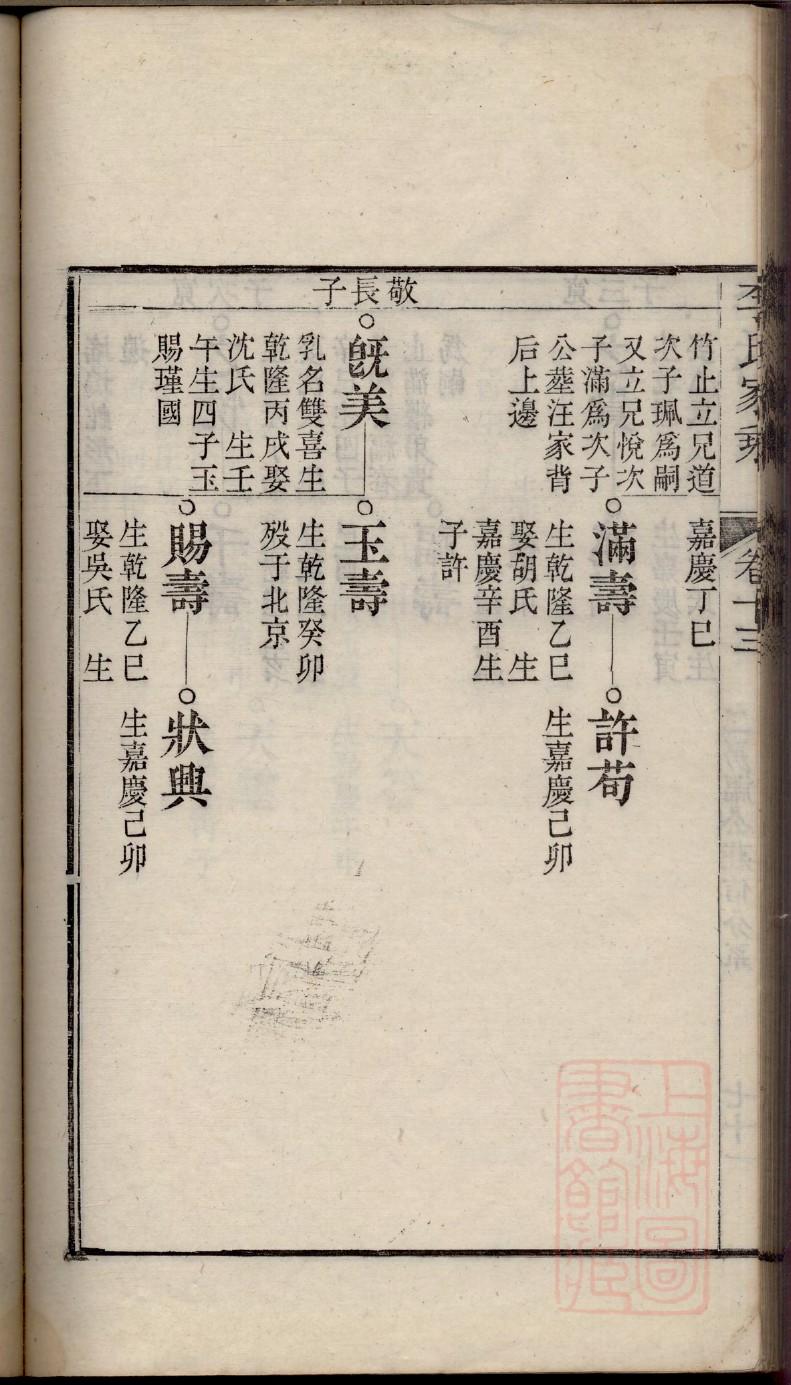 李氏家乘
卷十三
竹止立兄道
次子珮爲嗣
又立兄悅次
子滿爲次子
公塟汪家背
后上邊
嘉慶丁巳
滿壽
生乾隆乙巳
娶胡氏　生
嘉慶辛酉生
子許
許苟
生嘉慶己卯
敬長子
旣美
乳名雙喜生
乾隆丙戌娶
沈氏　生壬
午生四子玉
賜瑾國
玉壽
生乾隆癸卯
歿于北京
賜壽
生乾隆乙巳
娶吳氏　生
狀興
生嘉慶己卯
上海圖
書館藏